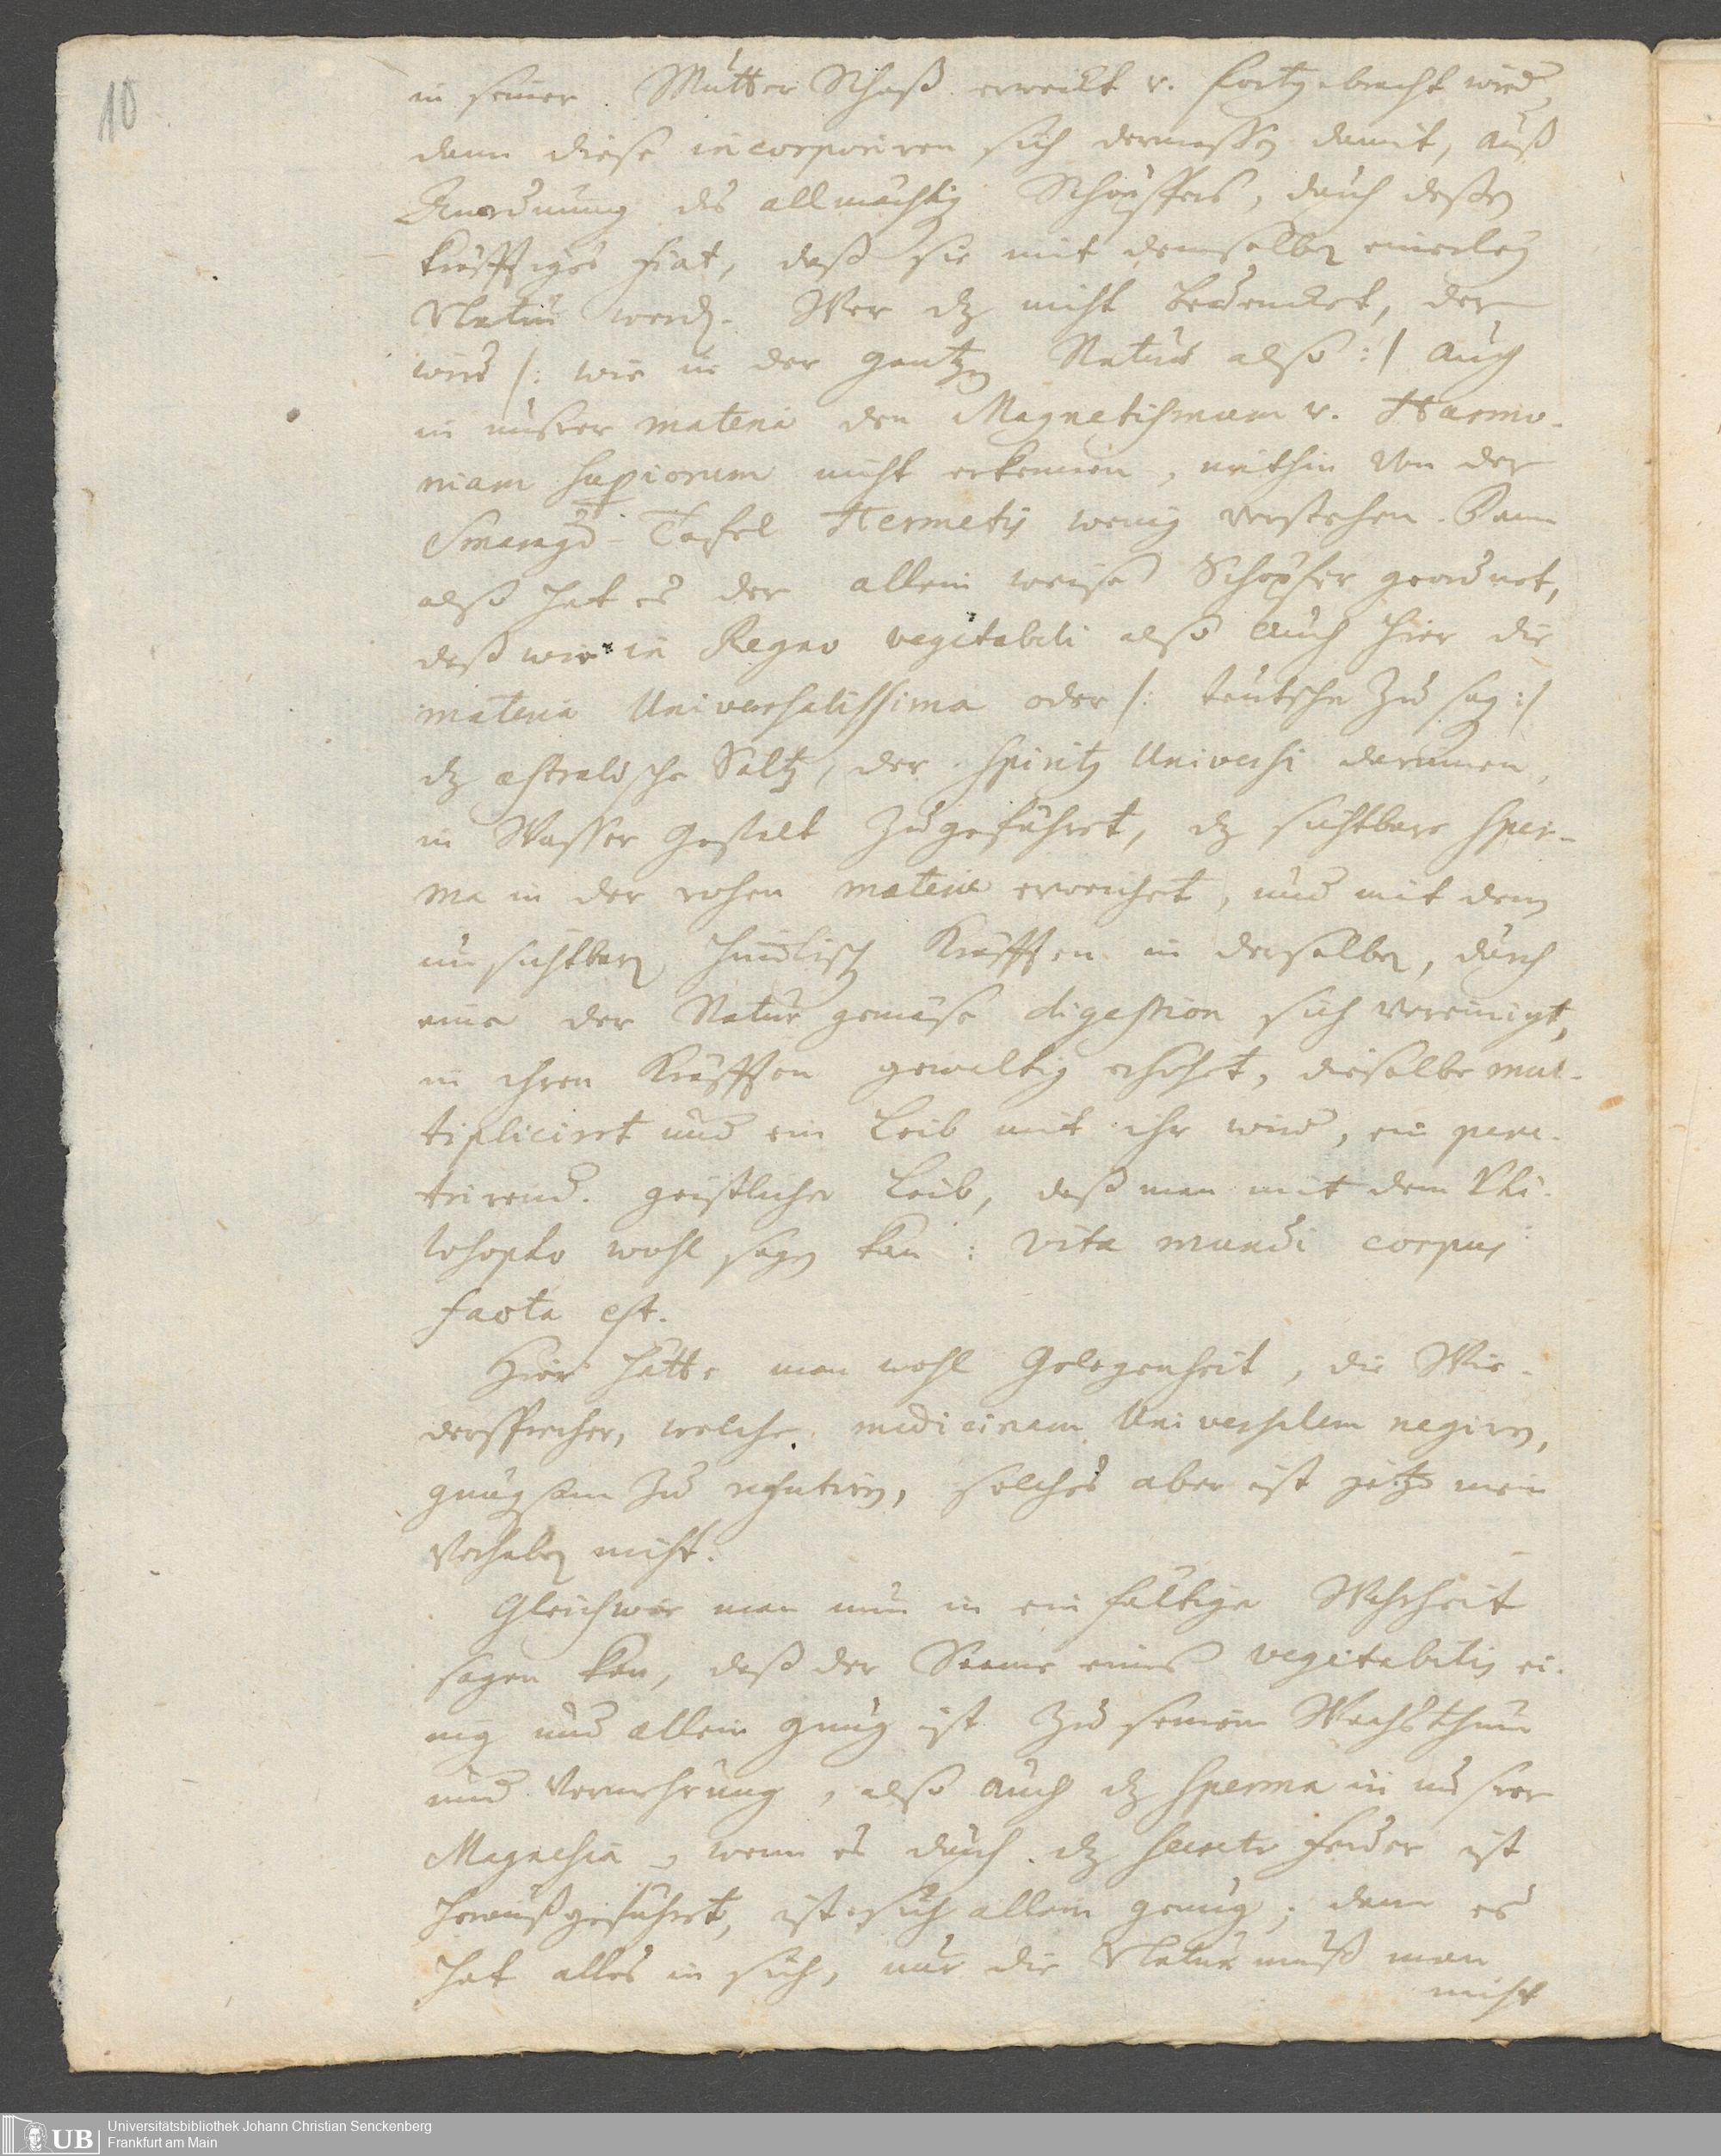 10
in seiner Mutter Schoß erweckt v. fortgebracht wird,
dann diese incorporiren sich dermassen damit, auß
Anordnung des allmächtig Schöpffers, durch deßen
kräfftiges fiat, daß sie mit demselben einerley
Natur werden. Wer dz nicht bedencket, der
wird /: wie in der gantzen Natur also :/ auch
in unserer materia den Magnetismum v. Harmo-
niam superiorum nicht erkennen, mithin von der
Smaragd-Tafel Hermetis wenig verstehen. Dann
also hat es der allein weise Schöpfer geordnet,
daß wie in Regno vegetabili also auch hier die
materia Universalissima oder /: teutsch zu sag :/
dz astralische Saltz, der Spiritus Universi darinnen,
in Wasser Gestalt zugeführet, dz sichtbare Sper-
ma in der rohen materia erweichet, und mit den
unsichtbaren himlisch Kräfften in derselben, durch
eine der Natur gemäse digestion sich vereinigt,
in ihren Kräfften gewaltig erhöhet, dieselbe mul-
tipliciret und ein Leib mit ihr wird, ein pene-
trirend. geistlicher Leib, daß man mit dem Phi-
losopho wohl sagen kan: Vita mundi corpus
facta est.
Hier hätte man wohl Gelegenheit, die Wie-
dersprecher, welche medicinam Universalem negiren,
gnugsam zu refutiren, solches aber ist jetzo mein
Vorhaben nicht.
Gleichwie man nun in einfältiger Wahrheit
sagen kan, daß der Saame eines vegetabilis ei-
nig und allein gnug ist zu seinem Wachsthum
und Vermehrung, also auch dz Sperma in unserer
Magnesia, wenn es durch dz secrete Feuer ist
herausgeführet, ist sich allein genug; dann es
hat alles in sich, nur die Natur muß man
nicht
UB Universitätsbibliothek Johann Christian Senckenberg
Frankfurt am Main